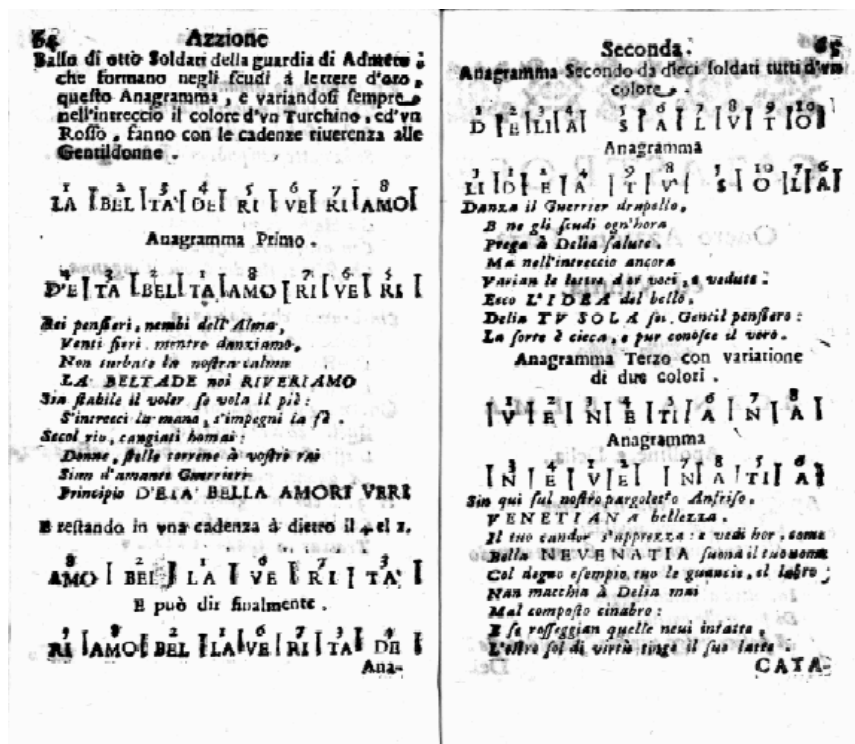 64 Azzione
Ballo di otto Soldati della guardia di Admeto ;
che formano negli scudi à lettere d'oro ,
questo Anagramma , e variandosi sempre
nell'intreccio il colore d'vn Turchino , ed'vn
Rosso , fanno con le cadenze riuerenza alle
Gentildonne .
1 2 3 4 5 6 7 8
LA | BEL | TA' | DE | RI | VE | RI | AMO |
Anagramma Primo .
4 3 2 1 8 7 6 5
D'E | TA | BEL | TA | AMO | RI | VE | RI |
Rei pensieri , nembi dell'Alma ,
Venti fieri mentre danziamo ,
Non turbate la nostra calma
LA BELTADE noi RIVERIAMO
Sia stabile il voler se vola il piè :
S'intrecci la mano , s'impegni la fè .
Secol rio , cangiati homai :
Donne , stelle terrene à vostri rai
Sian d'amante Guerrieri
Principio D'ETA' BELLA AMORI VERI
E restando in vna cadenza à dietro il 4 el
8 2 1 6 7 3
AMO | BEL | LA | VE | RI | TA' |
E può dir finalmente .
8 2 1 6 7 3 4
RI | AMO | BEL | LA | VE | RI | TA | DE |
Ana-
Seconda . 65
Anagramma Secondo da dieci soldati tutti d'vn
colore .
1 2 3 4 5 6 7 8 9 10
D | E | LI | A | S | A | L | V | T | O |
Anagramma
3 1 2 4 9 8 5 10 7 6
LI | D | E | A | T | V | S | O | L | A |
Danza il Guerrier drapello ,
E ne gli scudi ogn'hora
Prega à Delia salute .
Ma nell'intreccio ancora
Varian le lettre voci , e vedute :
Ecco L'IDEA del bello .
Delia TV SOLA sei . Gentil pensiero :
La sorte è cieca , e pur conosce il vero .
Anagramma Terzo con variatione
di due colori .
1 2 3 4 5 6 7 8
V | E | N | E | TI | A | N | A |
Anagramma
3 4 1 2 7 8 5 6
N | E | V | E | N | A | TI | A |
Sin qui sul nostro pargoletto Anfriso .
VENETIANA bellezza .
Il tuo candor s'apprezza : e vedi hor , come
Bella NEVENATIA suona il tuo nome
Col degno esempio tuo le guancie , el labro ;
Non macchia à Delia mai
Mal composto cinabro :
E se rosseggian quelle neui intatte ,
L'ostro sol di virtù tinge il suo latte .
CATA-